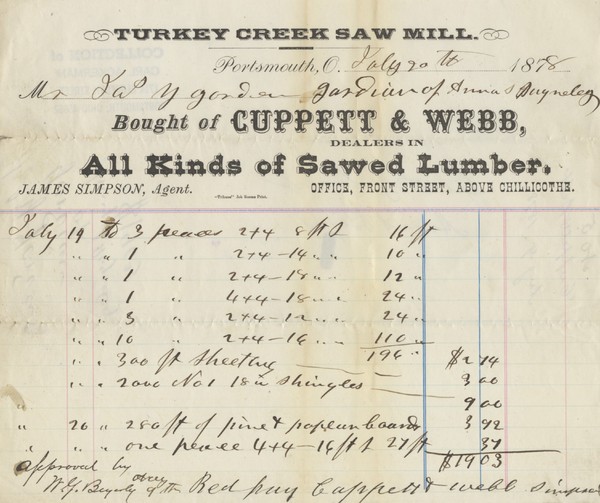 TURKEY CREEK SAW MILL.
Portsmouth, O. July 20th 1878
Mr Jas Y gorden gardian of Annas
Bought of CUPPETT & WEBB,
DEALERS IN
All Kinds of Sawed Lumber.
JAMES SIMPSON, Agent. "Tribune" Job Rooms Print. OFFICE, FRONT STREET, ABOVE CHILLICOTHE.
July 19 to 3 peaces 2+4 8 ft 16 ft
" " 1 " 2+4-14 " " 10 "
" " 1 " 2+4-18 " " 12 "
" " 1 " 4+4-18 " " 24 "
" " 3 " 2+4-12 " " 24 "
" " 10 " 2+4-16 " " 110 "
196 " $2 14
" " 300 ft sheeting 3 00
" " 2000 No 1 18 in shingles 9 00
" 20 " 280 ft of pine & poplar boards 3 92
" " " one peace 4+4-16 ft 27 ft 37
$19 03
approval by
of the Red pay Cuppett & Webb Simpson